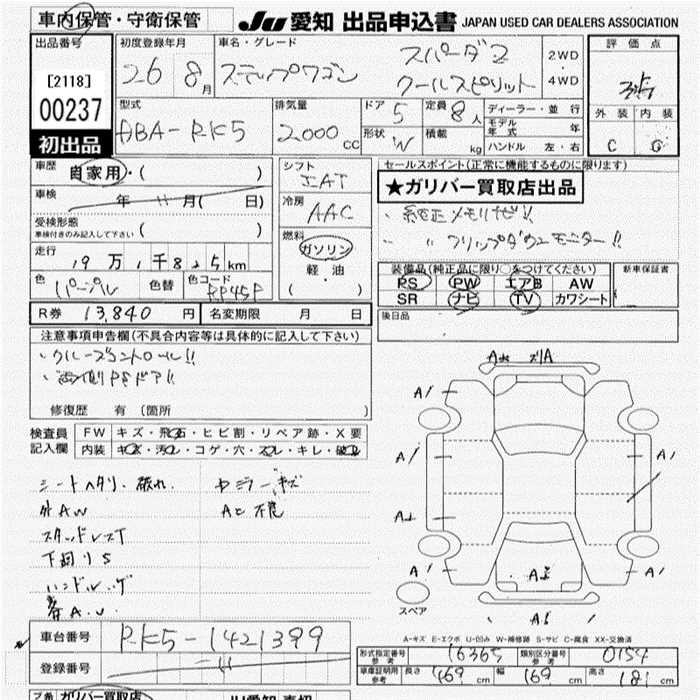 車内保管・守衛保管
JU 愛知 出品申込書 JAPAN USED CAR DEALERS ASSOCIATION
出品番号
[2118]
00237
初出品
初度登録年月
26年 8月
車名・グレード
ステップワゴン
スパーダZ
クールスピリット
2WD
4WD
評価点
外装 内装
C C
型式
ABA-RK5
排気量
2000cc
ドア 5
形状 W
定員 8人
積載 kg
ディーラー・並行
モデル年式 年
ハンドル 左・右
車歴
自家用・( )
車検
年 月( 日)
受検形態
車検付きのみ記入して下さい ( )
走行
19万1千825km
色 パープル 色替 色コード RP45P
シフト
冷房
AAC
燃料
ガソリン
軽油
( )
セールスポイント(正常に機能するものに限ります)
★ガリバー買取店出品
・純正メモリナビ!!
・〃 フリップダウンモニター!!
装備品(純正品に限り○をつけてください)
PS PW エアB AW
SR ナビ TV カワシート
新車保証書
後日品
R券 13,840円
名変期限 月 日
注意事項申告欄(不具合内容等は具体的に記入して下さい)
・クルーズコントロール!!
・両側PSドア!!
修復歴 有 (箇所 )
検査員記入欄
FW キズ・飛石・ヒビ割・リペア跡・X要
内装 キズ・汚れ・コゲ・穴・スレ・キレ・破れ
シートヘタリ・破れ
外AW
下回りS
ミラーキズ
スペア
A-キズ E-エクボ U-凹み W-補修跡 S-サビ C-腐食 XX-交換済
車台番号 RK5-1421399
登録番号
形式指定番号 参考 16365
類別区分番号 参考 0154
車庫証明用 参考 長さ 469cm 幅 169cm 高さ 181cm
ガリバー買取店
JU愛知